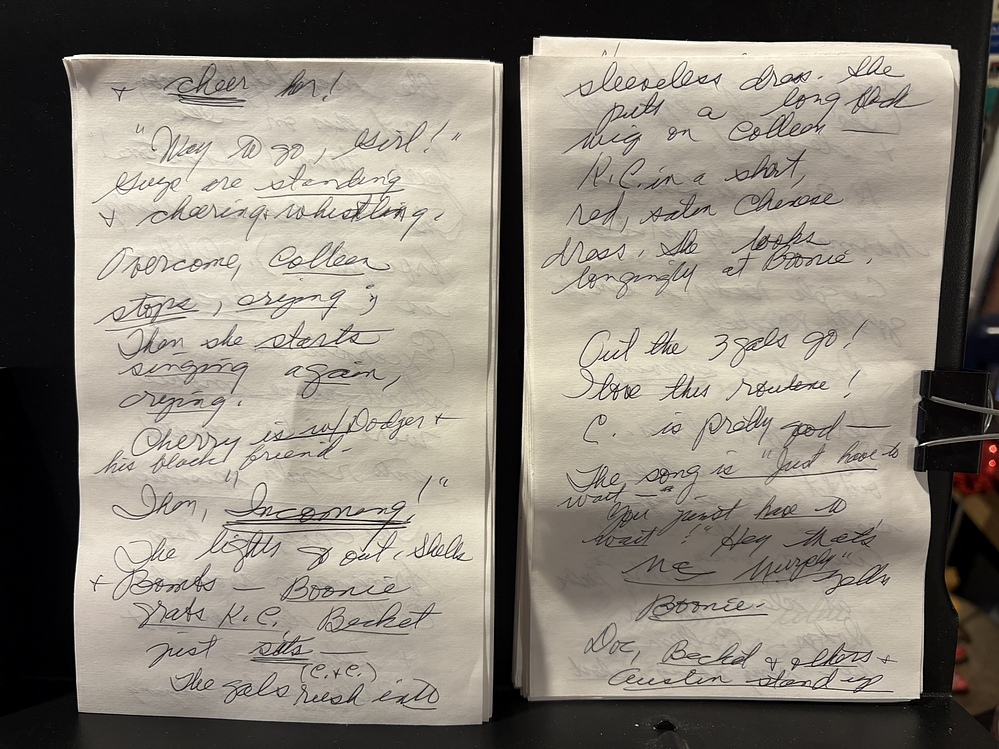 + cheer her!
"Way to go, Girl!"
Guys are standing
+ cheering + whistling.
Overcome, Colleen
stops, crying;
Then she starts
singing again,
crying.
Cherry is w/ Dodger +
his black friend-
Then, "Incoming!"
The lights go out, Shells
+ Bombs — Boonie
grabs K.C. Becket
just sits —
(C. + C.)
The gals rush into
sleeveless dress. She
puts a long black
wig on Colleen —
K.C. in a short,
red, satin Chinese
dress. She looks
longingly at Boonie.
Out the 3 gals go!
I love this routine!
C. is pretty good —
The song is "Just have to
wait —"
You just have to
wait!" "Hey that's
Mc Murphy" yells
Boonie.
Doc, Becket & others +
Austin stand up